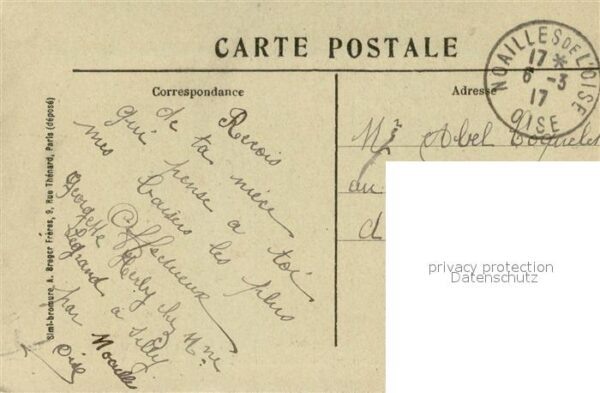 CARTE POSTALE
Correspondance
Adresse
NOAILLES DE L'OISE
17 *
6 -3
17
OISE
Simi-bromure, A. Breger Frères, 9, Rue Thénard, Paris (déposé)
Recois
de ta niéce
qui pense a toi
mes baisers les plus
Affectueux
Georgette chez Mme
Legrand à Silly
par Noailles
Oise
Mr Abel
au
d
privacy protection
Datenschutz